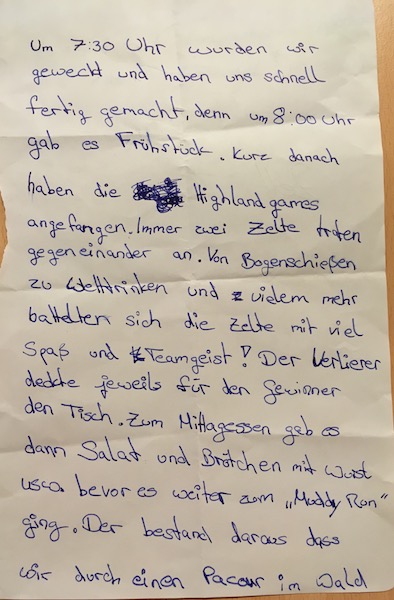 Um 7:30 Uhr wurden wir
geweckt und haben uns schnell
fertig gemacht, denn um 8:00 Uhr
gab es Frühstück. Kurz danach
haben die Highlandgames
angefangen. Immer zwei Zelte traten
gegeneinander an. Von Bogenschießen
zu Welttrinken und vielem mehr
battelten sich die Zelte mit viel
Spaß und Teamgeist! Der Verlierer
deckte jeweils für den Gewinner
den Tisch. Zum Mittagessen gab es
dann Salat und Brötchen mit Wurst
usw. bevor es weiter zum „Muddy Run"
ging. Der bestand daraus dass
wir durch einen Pacour im Wald